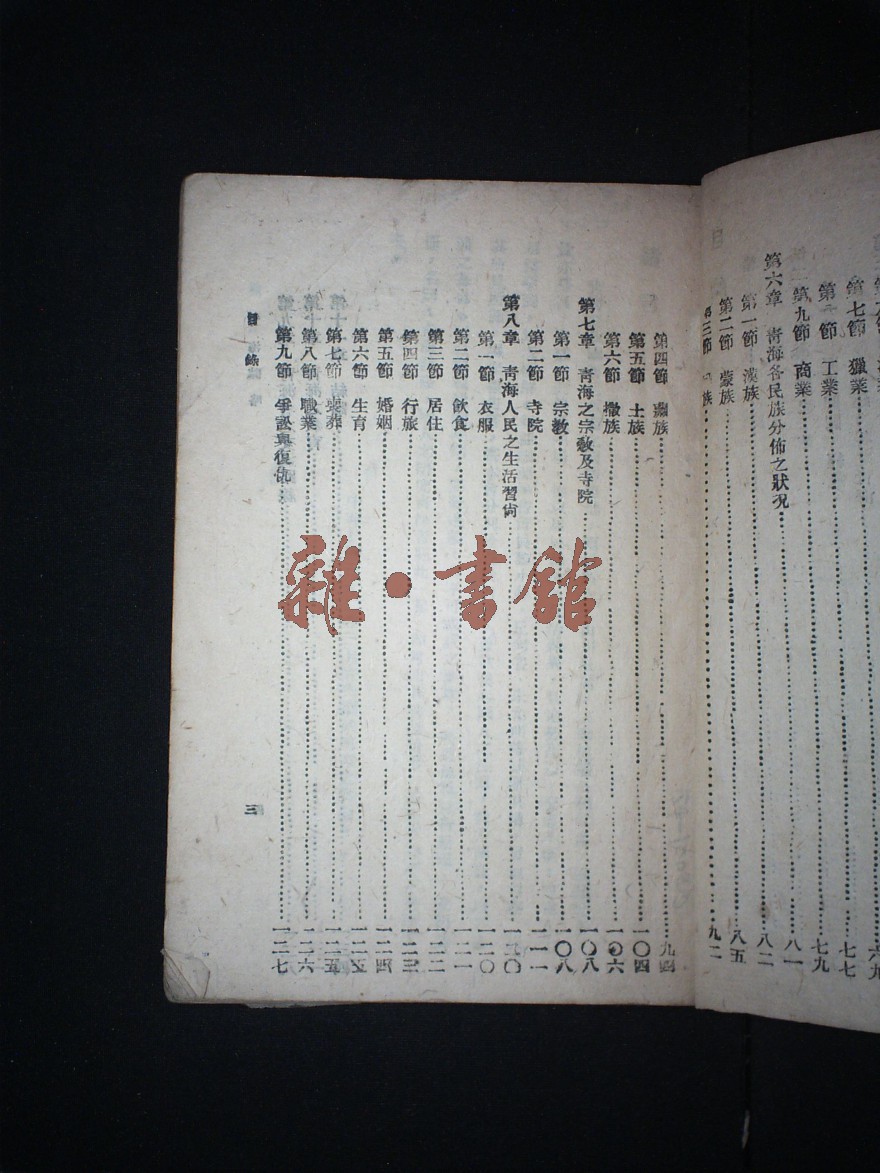 第七節 獵業 七七
第 節 工業 七九
第九節 商業 八一
第六章 青海各民族分佈之狀况
第一節 漢族 八二
第二節 蒙族 八五
第三節 族 九二
第四節 藏族 九四
第五節 土族 一〇四
第六節 撒族 一〇六
第七章 青海之宗教及寺院 一〇八
第一節 宗教 一〇八
第二節 寺院 一一一
第八章 青海人民之生活習尙 一二〇
第一節 衣服 一二〇
第二節 飲食 一二一
第三節 居住 一二二
第四節 行旅 一二三
第五節 婚姻 一二四
第六節 生育 一二五
第七節 喪葬 一二五
第八節 職業 一二六
第九節 爭訟與復仇 一二七
目錄
三
雜·書館